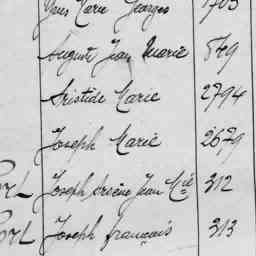 Yves Marie Georges 1703
Auguste Jean Marie 849
Aristide Marie 2794
Joseph Marie 2679
Joseph Arsène Jean Mie 312
Joseph françois 313